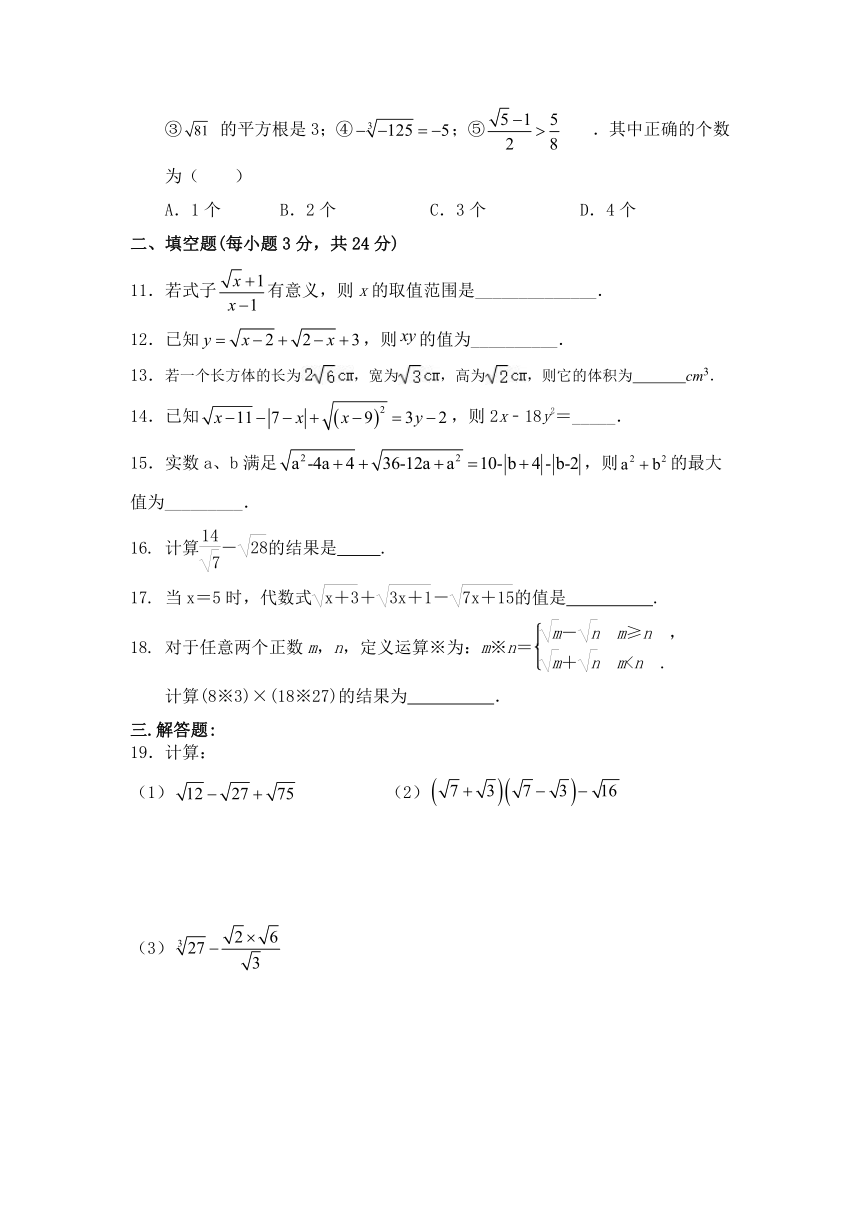 ③√81 的平方根是3;④−∛−125=−5;⑤(√5−1)/2>5/8 .其中正确的个数
为( )
A.1个 B.2个 C.3个 D.4个
二、填空题(每小题3分,共24分)
11.若式子(√x+1)/(x−1)有意义,则x的取值范围是______________.
12.已知y=√(x−2)+√(2−x)+3,则xy的值为__________.
13.若一个长方体的长为2√6cm,宽为√3cm,高为√2cm,则它的体积为______cm³.
14.已知√(x−11)−|7−x|+√((x−9)²)=3y−2,则2x﹣18y²=_____.
15.实数a、b满足√(a²-4a+4)+√(36-12a+a²)=10-|b+4|-|b-2|,则a²+b²的最大
值为_________.
16. 计算14/√7-√28的结果是_____.
17. 当x=5时,代数式√(x+3)+√(3x+1)-√(7x+15)的值是__________.
18. 对于任意两个正数m,n,定义运算※为:m※n={√m-√n m≥n ,
√m+√n m<n .
计算(8※3)×(18※27)的结果为__________.
三.解答题:
19.计算:
(1)√12−√27+√75 (2)(√7+√3)(√7−√3)−√16
(3)∛27−(√2×√6)/√3